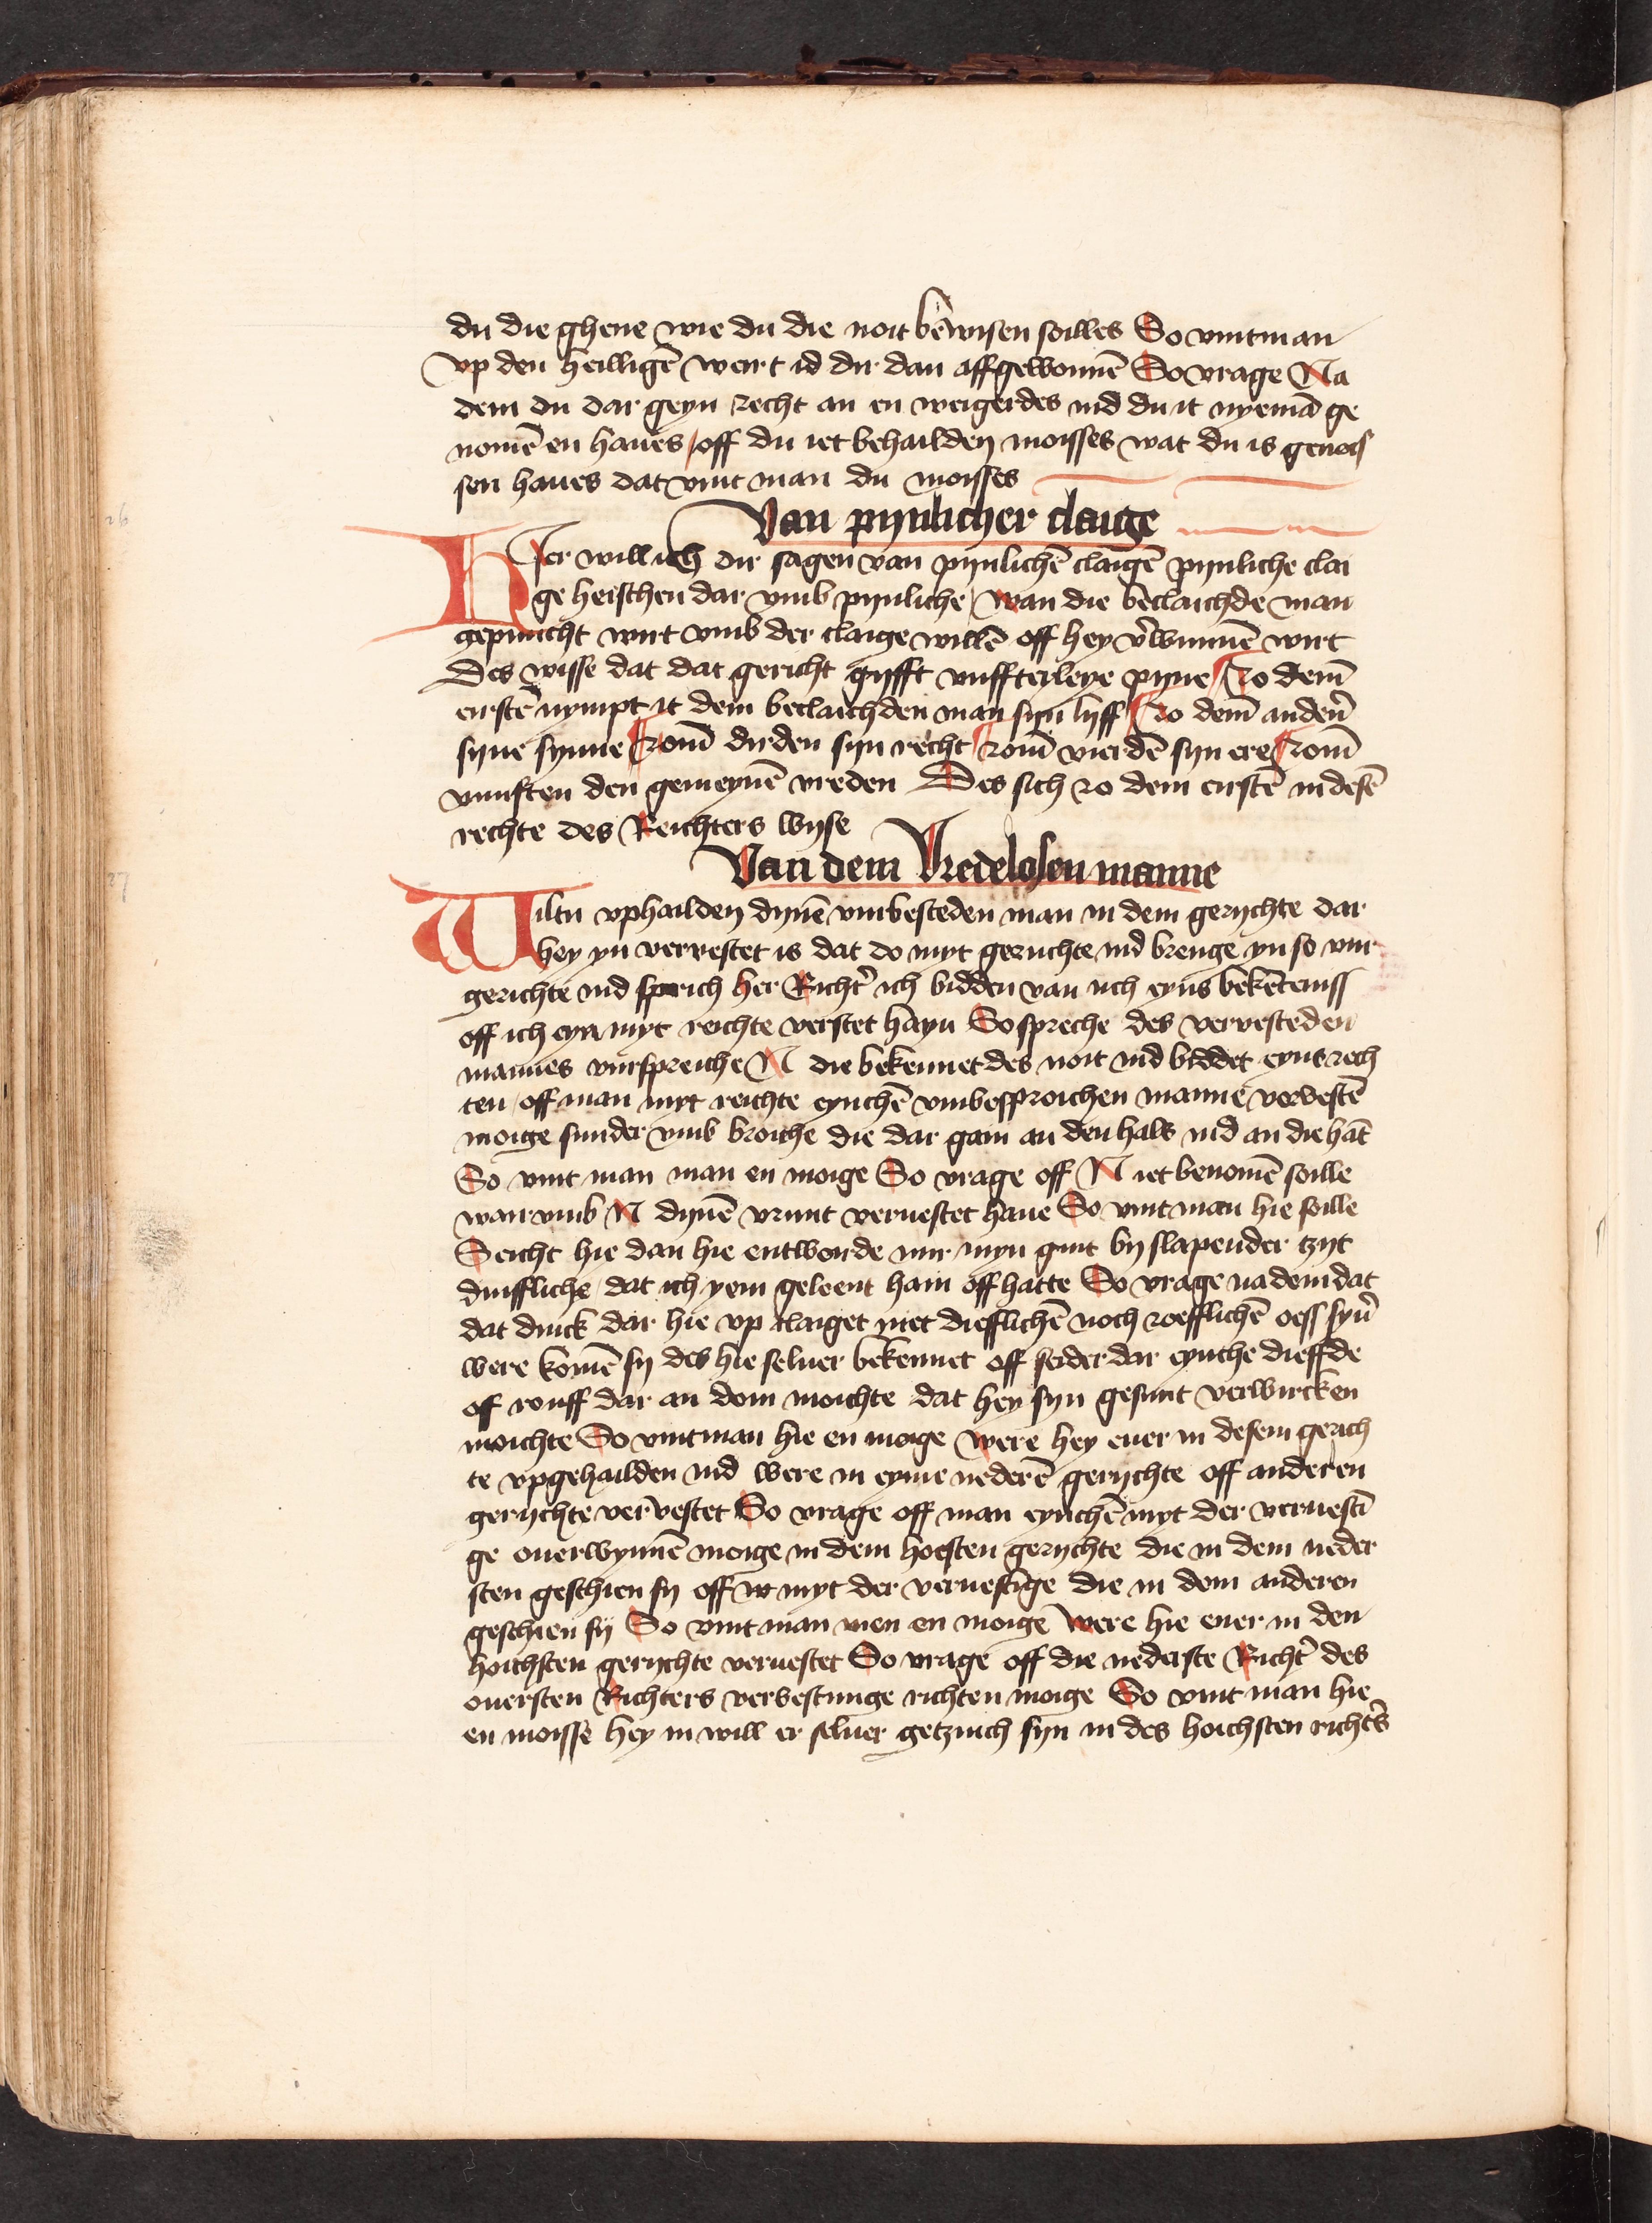 du die ghene wie du die noit bewisen soilles So vintman
vp den heilligē wert id dir dan affgewonnē So vrage Na
dem du dar geyn recht an en weigerdes ind du it nyemā ge
nomē en haues / off du iet behailden moisses wat du is genois
sen haues dat vint man du moisses
Van pynlicher claige
Hier will ich dir sagen van pynlichē claigē pynliche clai
ge heischen dar vmb pynliche / wan die beclaichde man
gepinicht wirt vmb der claige willē off hey v'wunnē wirt
Des wisse dat dat gericht gyfft vuffterleye pyne Zo dem
eirstē nympt it dem beclaichden man syn lyff Zo dem anderē
syne synne Zom dirden syn recht Zom vierdē syn ere Zom
vunften den gemeynē vreden Des sich zo dem eirstē in desē
rechte des Reichters wyse
Van dem Vredelosen manne
Wiltu vphailden dynē vmbesteden man in dem gerychte dar
hey yn vervestet is dat do myt geruchte ind brenge yn so vur
gerichte ind sprich her Richt' ich bidden van uch eyns bekēteniss
off ich eyn myt reichte verstet hayn So spreche des vervesteden
mannes vurspreiche N die bekennet des noit ind biddet eyns rech
ten / off man myt reichte eynchē vmbesproichen manne vervestē
moige sunder vmb broiche die dar gain an den hals ind an die hāt
So vint man man en moige So vrage off N iet benomē soille
war vmb N dynē vrunt veruestet haue So vint man hie soille
Seicht hie dan hie entworde mir myn guit by slapender tzyt
duiffliche / dat ich yem geleent hain off hatte So vrage na dem dat
dat dinck dar hie vp claiget niet diefflichē noch roefflichē oess syn'
were komē sy des hie seluer bekennet off seider dar eynche dieffde
of rouff dar an doin moichte dat hey syn gesunt verwircken
moichte So vintman hie en moige Were hey euer in desem gerich
te vpgehailden ind were in eyme nederē gerychte off anderen
gerychte vervestet So vrage off man eynchē myt der veruesti
ge ouerwynnē moige in dem hoesten gerychte die in dem neder
sten geschien sy off in myt der veruestige die in dem anderen
geschien sy So vint man men en moige Were hie euer in den
hoichsten gerychte veruestet So vrage off die nederste Richt' des
ouersten Richters vervestunge richten moige So vint man hie
en moisse hey in will er seluer getzuich syn in des hoichsten richt's